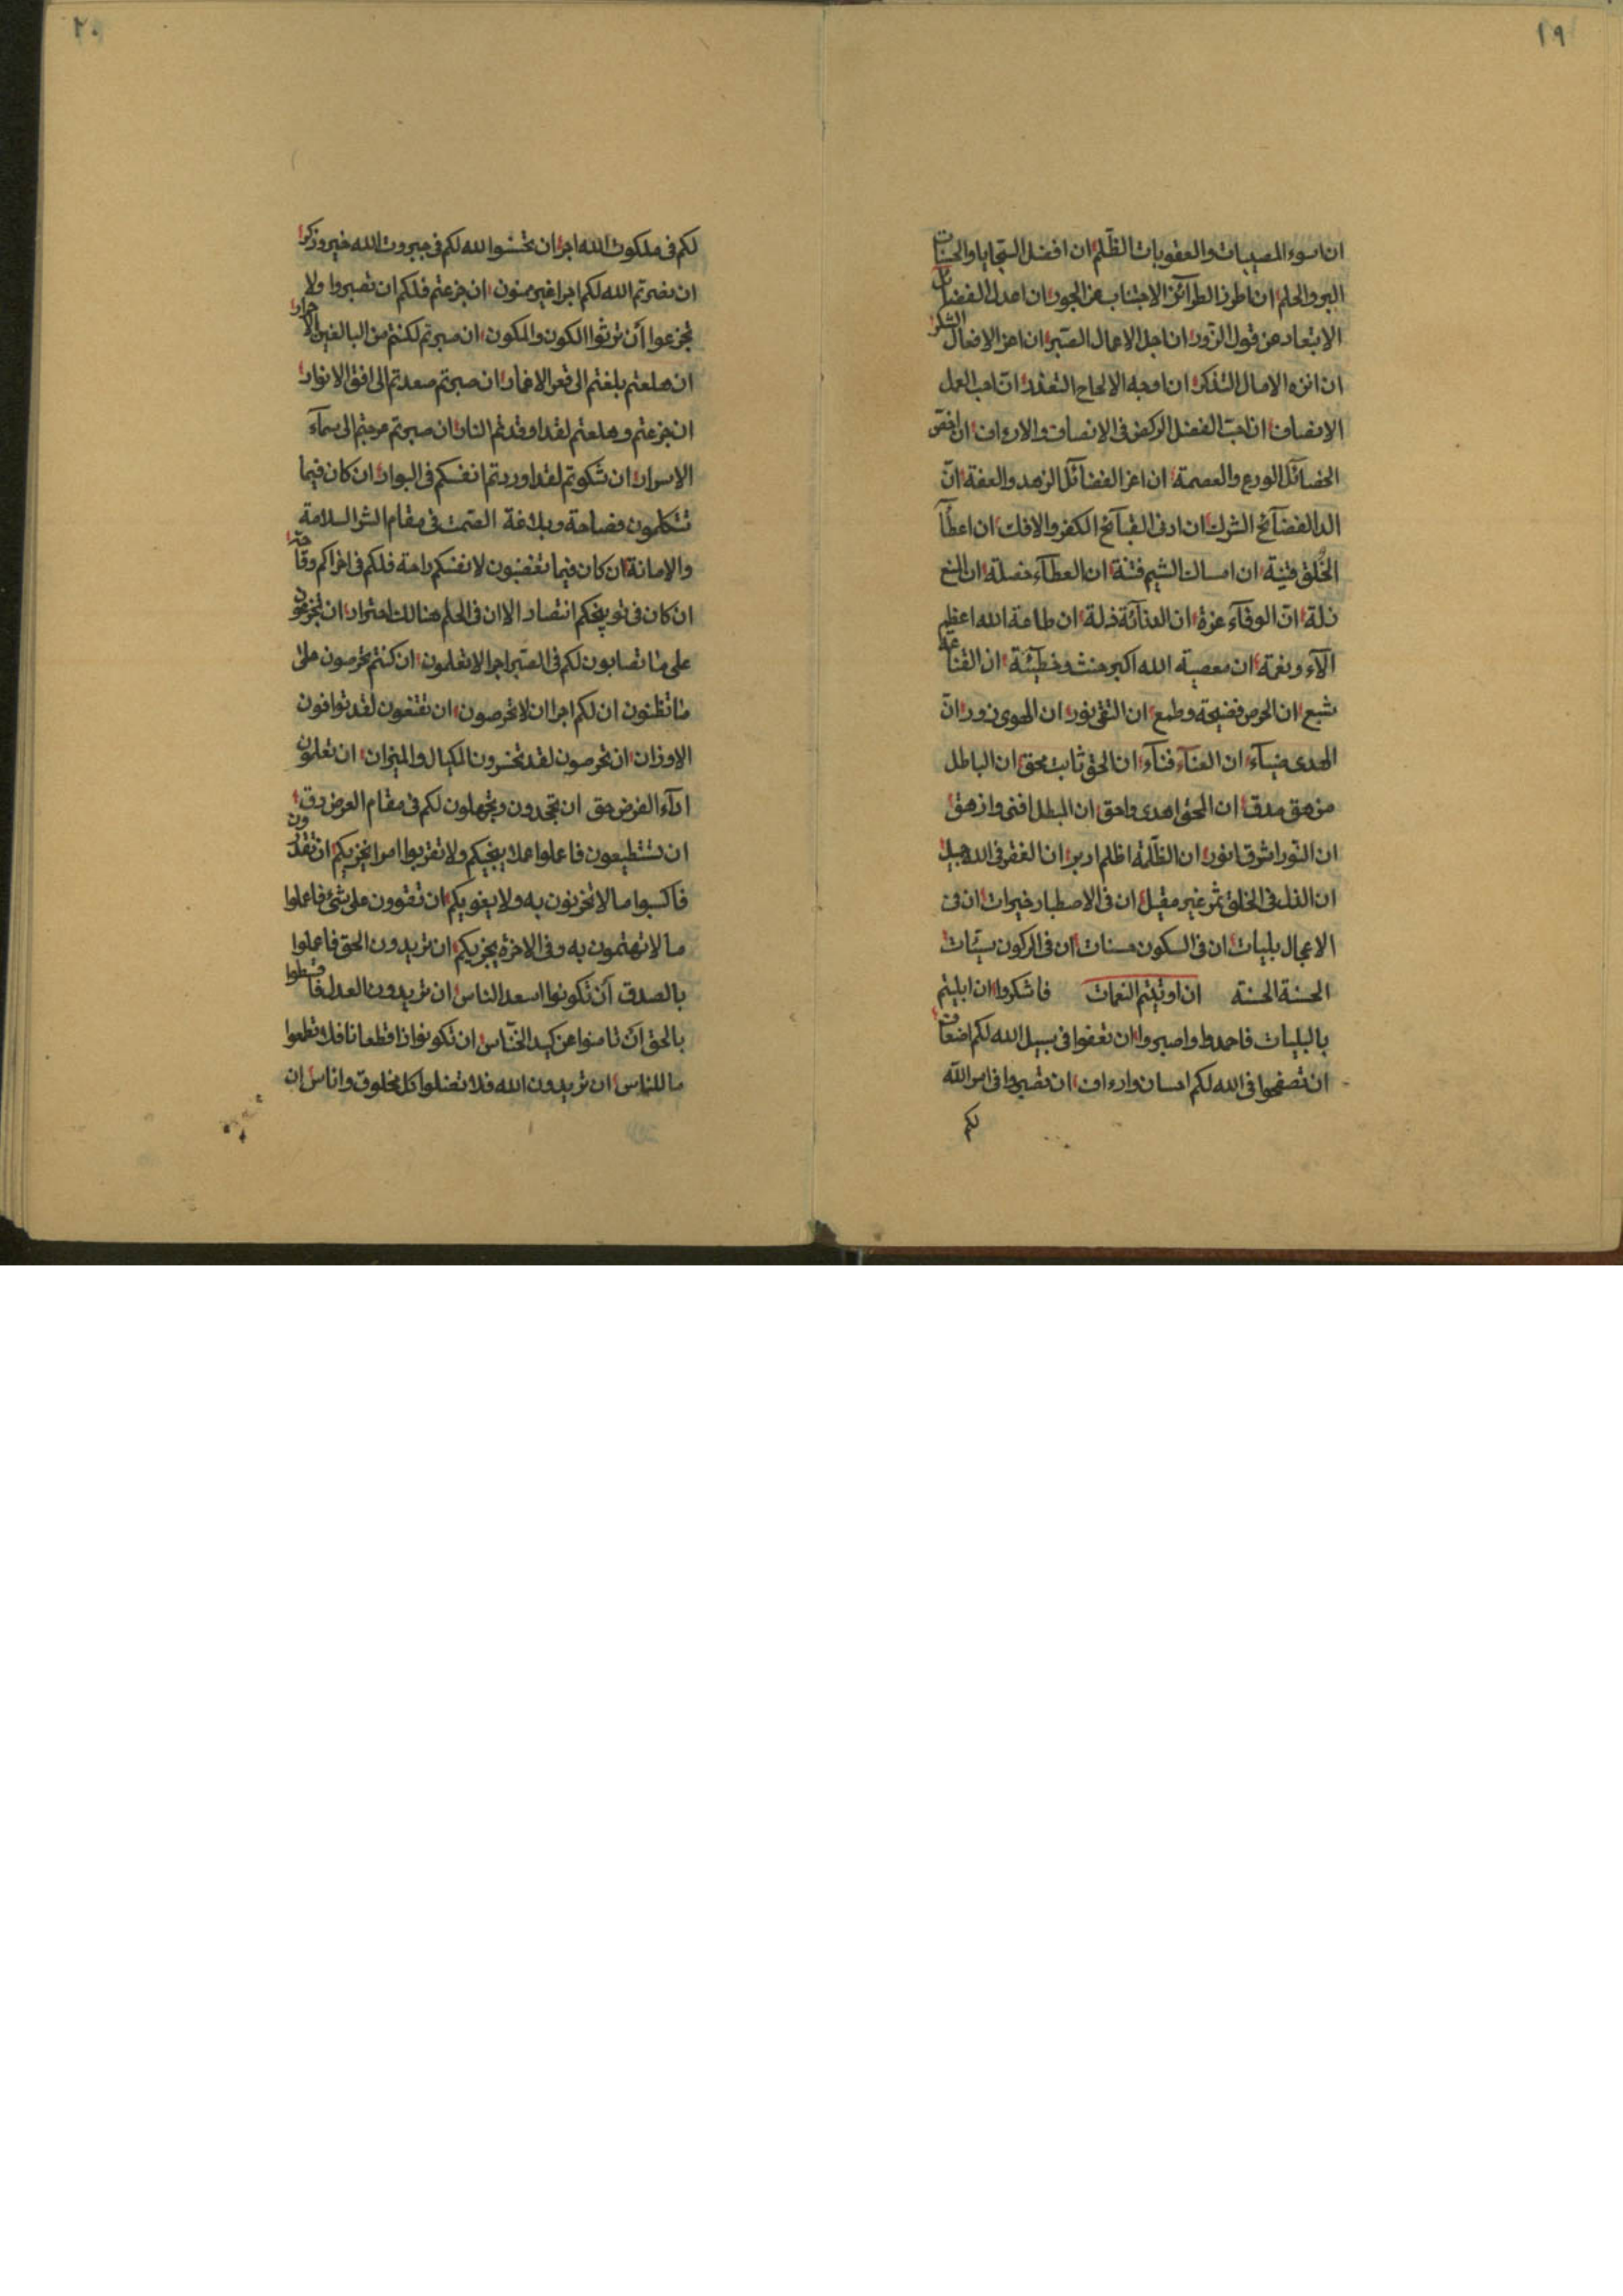 ١٩
ان اسوء المصيبات والعقوبات الظّلم ان افضل السّجايا والحسنات
البر والحلم ان اطرز الطرآئز الاجتناب عن الجور ان اعدل الفضايل
الابتعاد عن قول الزّور ان اجل الاعمال الصّبر ان اعز الافعال الشكر
ان انزه الامال التذكر ان اوجه الالحاح التفقد ان احب العمل
الانصاف ان احبّ الفضل الركض فى الانصاف والارءاف ان اخصّ
الخصآئل الورع والعصمة ان اعز الفضآئل الزهد والعفة انّ
الد الفضآئح الشرك ان ادنى القبآئح الكفر والافك ان اعطآ
الخُلق فتنة ان امساك الشيم فتنة ان العطآء خصلة ان المنع
ذلة انّ الوفآء عزة ان الدنآئة ذلة ان طاعة الله اعظم
الآء ونعمة ان معصية الله اكبر حنث وخطيئة ان القناعة
شبع ان الحرص فضيحة وطمع ان التقى نور ان الهوى زور انّ
الهدى ضيآء ان الغنآء فنآء ان الحق ثابت محق ان الباطل
مزهق مدق ان المحق اهدى واحق ان المبطل افنى وازهق
ان النور اشرق انور ان الظّلمة اظلم ادبر ان الفقر فى الله جميل
ان الذل فى الخلق ثمر غير مقبل ان فى الاصطبار خيرات ان فى
الاعجال بليات ان فى السكون حسنات ان فى الركون سيّئات
الحسنة الحسنة ان اوتيتم النعمات فاشكروا ان ابليتم
بالبليات فاحمدوا واصبروا ان تعفوا فى سبيل الله لكم اضعاف
ان تصفحوا فى الله لكم احسان وارءاف ان تصبروا فى امر اللّه
لكم
٢٠
لكم فى ملكوت الله اجر ان تخشوا لله لكم فى جبروت الله خير وذكر
ان نصرتم الله لكم اجرا غير ممنون ان جزعتم فلكم ان تصبروا ولا
تجزعوا أن ترثوا الكون والمكون ان صبرتم لكنتم من البالغين الاحرار
ان هلعتم بلغتم الى قعر الاغمار ان صبرتم صعدتم الى افق الانوار
ان جزعتم وهلعتم لقد اوقدتم النار ان صبرتم عرجتم الى سمآء
الاسرار ان شكوتم لقد اوردتم انفسكم فى البوار ان كان فيما
تتكلمون فصاحة وبلاغة الصّمت فى مقام الشر السلامة
والامانة ان كان فيما تغضبون لانفسكم راحة فلكم فى اخراكم وقاحة
ان كان فى توبيخكم انتصار الا ان فى الحلم هنالك اعتزار ان تجزعون
على ما تصابون لكم فى الصّبر اجرا لا تعلمون ان كنتم تحرصون على
ما تظنون ان لكم اجرا ان لا تحرصون ان تقنعون لقد توافون
الاوزان ان تحرصون لقد تخسرون المكيال والميزان ان تعلمون
ادآء الفرض حق ان تجحدون وتجهلون لكم فى مقام العرض دق
ان تستطيعون فاعلوا عملا ينجيكم ولا تقربوا امرا يخزيكم ان تقدرون
فاكسبوا ما لا تحزنون به ولا يغويكم ان تقوون على شئ فاعملوا
ما لا تهتمون به وفى الاخرة يجزيكم ان تريدون الحق فاعملوا
بالصدق أن تكونوا اسعد الناس ان تريدون العدل فاقسطوا
بالحق أن تامنوا عن كيد الخنّاس ان تكونوا ذا قطعانا فلا تطمعوا
ما للناس ان تريدون الله فلا تضلوا كل مخلوق واناس ان